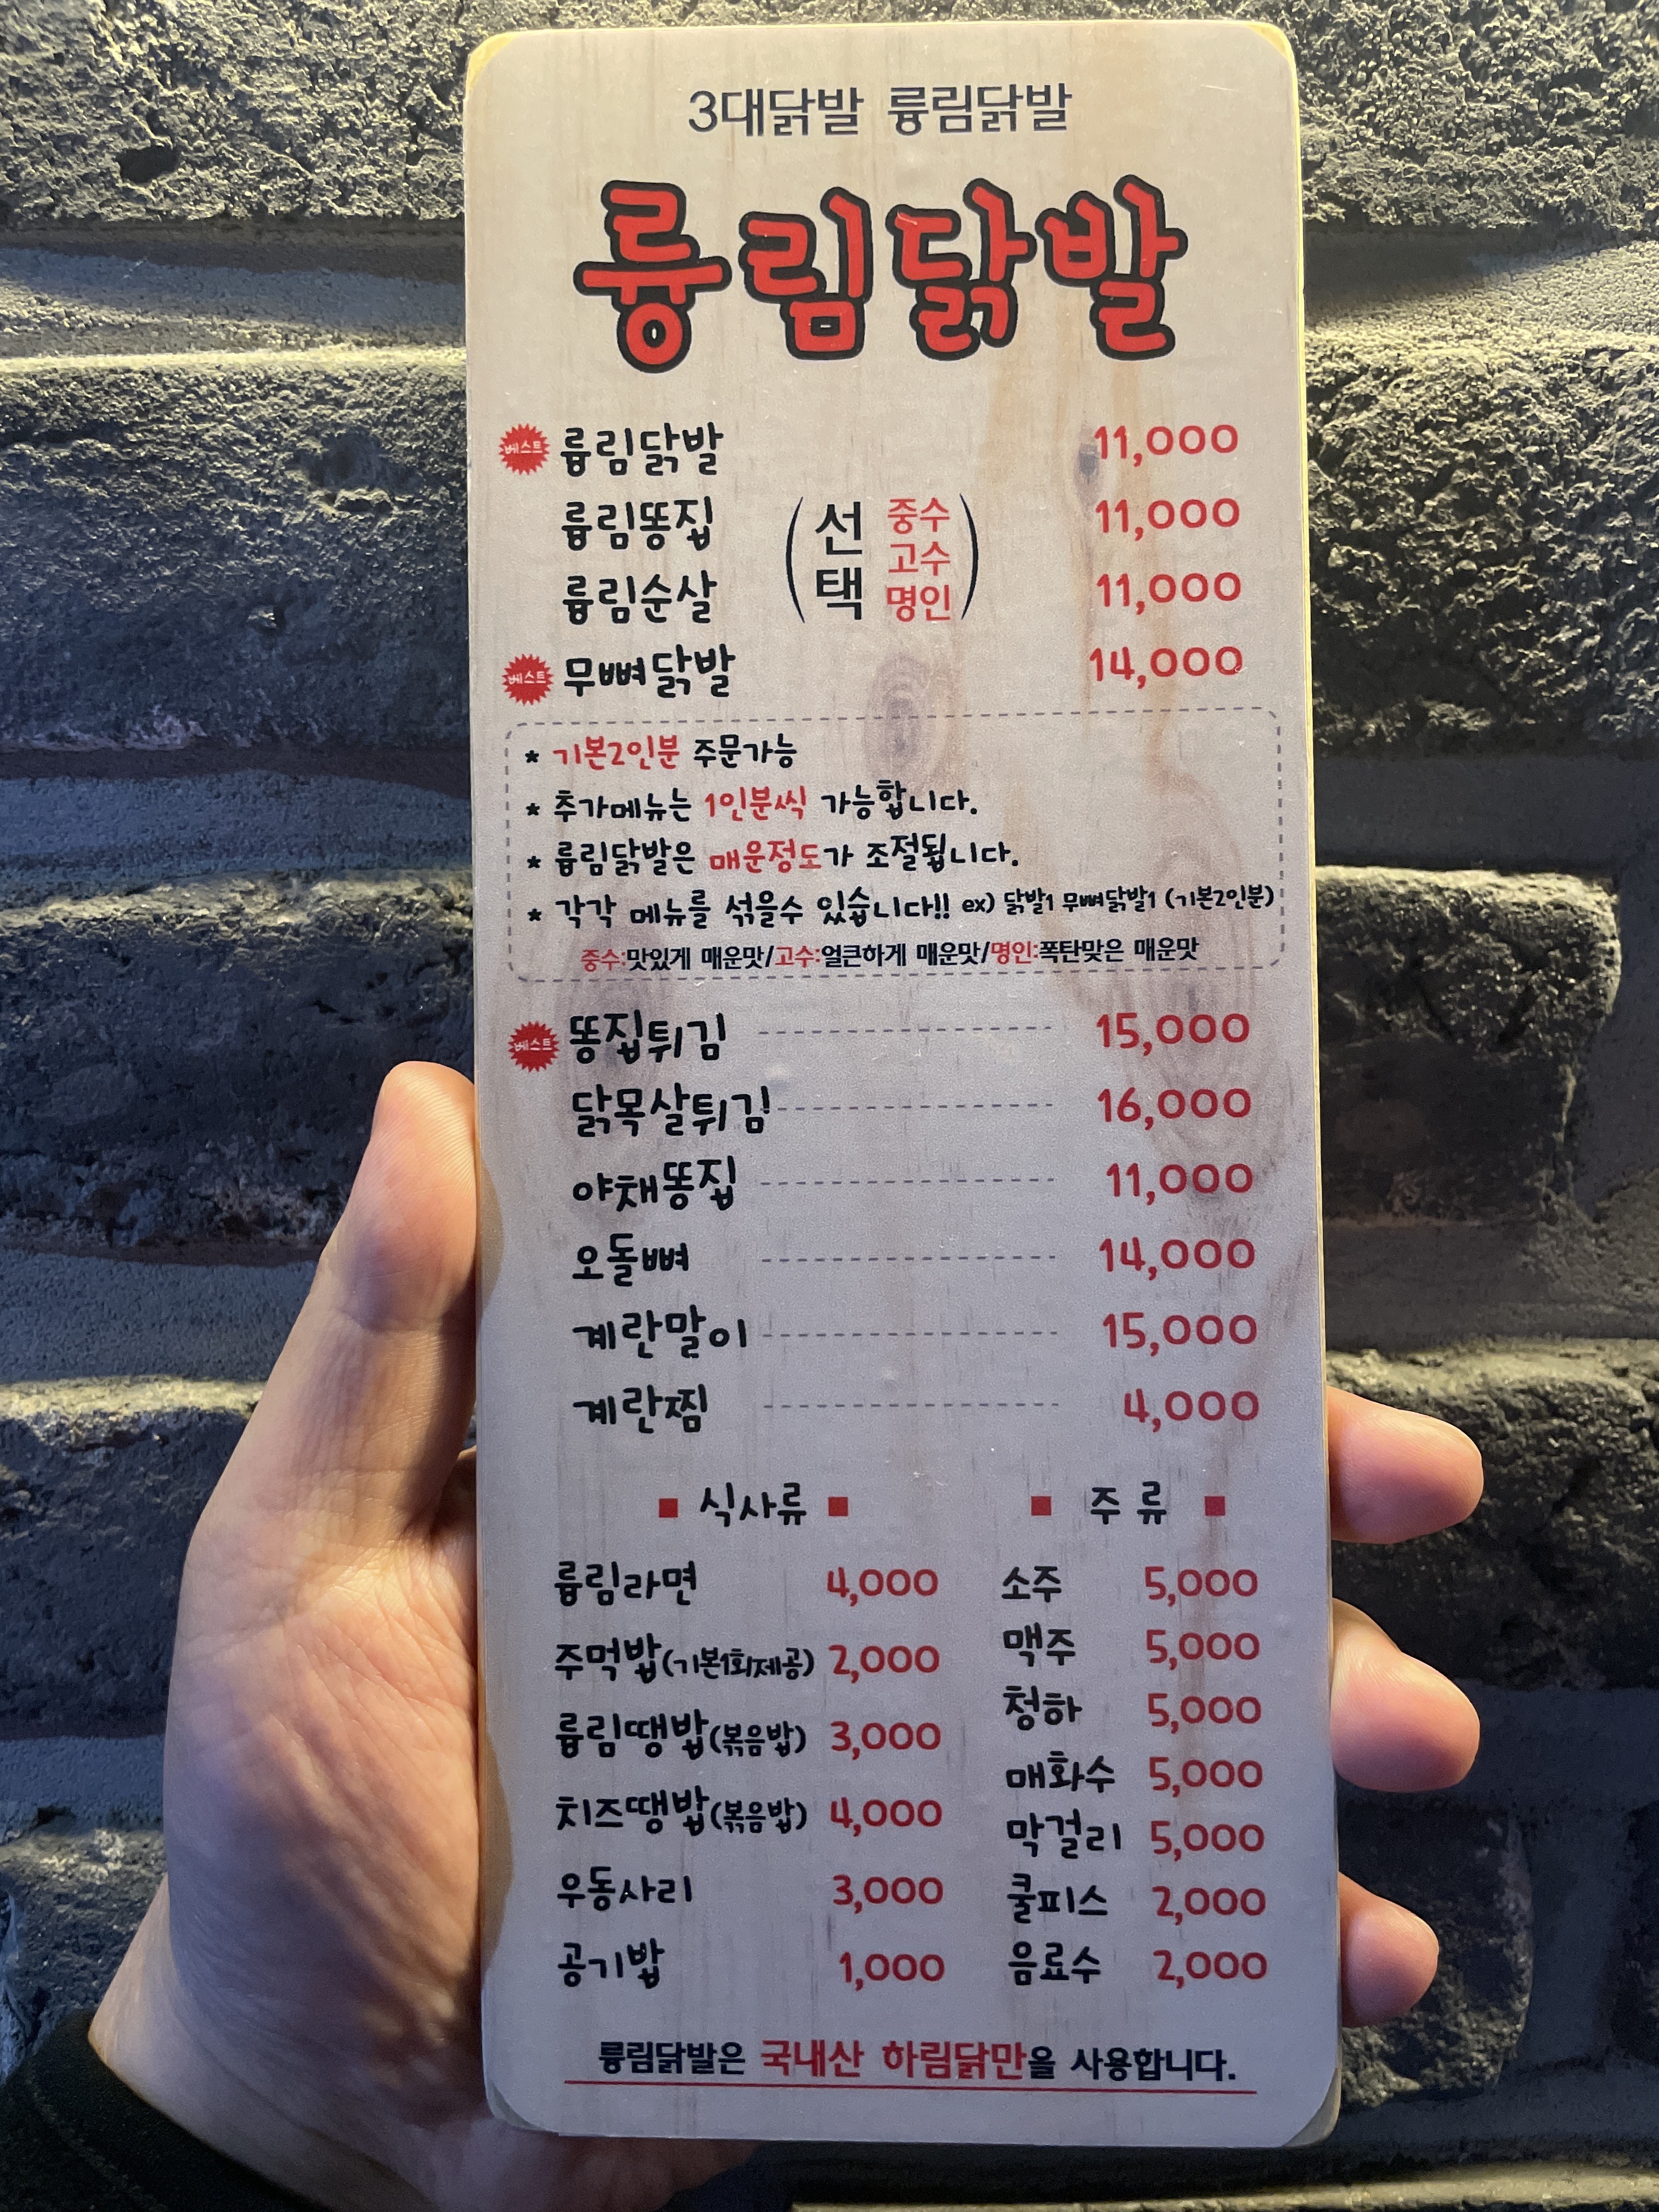 3대닭발 륭림닭발
륭림닭발
베스트 륭림닭발 11,000
륭림똥집 11,000
륭림순살 11,000
(선택 중수 고수 명인)
베스트 무뼈닭발 14,000
* 기본2인분 주문가능
* 추가메뉴는 1인분씩 가능합니다.
* 륭림닭발은 매운정도가 조절됩니다.
* 각각 메뉴를 섞을수 있습니다!! ex) 닭발1 무뼈닭발1 (기본2인분)
중수:맛있게 매운맛/고수:얼큰하게 매운맛/명인:폭탄맞은 매운맛
베스트 똥집튀김 15,000
닭목살튀김 16,000
야채똥집 11,000
오돌뼈 14,000
계란말이 15,000
계란찜 4,000
식사류
륭림라면 4,000
주먹밥(기본1회제공) 2,000
륭림땡밥(볶음밥) 3,000
치즈땡밥(볶음밥) 4,000
우동사리 3,000
공기밥 1,000
주류
소주 5,000
맥주 5,000
청하 5,000
매화수 5,000
막걸리 5,000
쿨피스 2,000
음료수 2,000
륭림닭발은 국내산 하림닭만을 사용합니다.